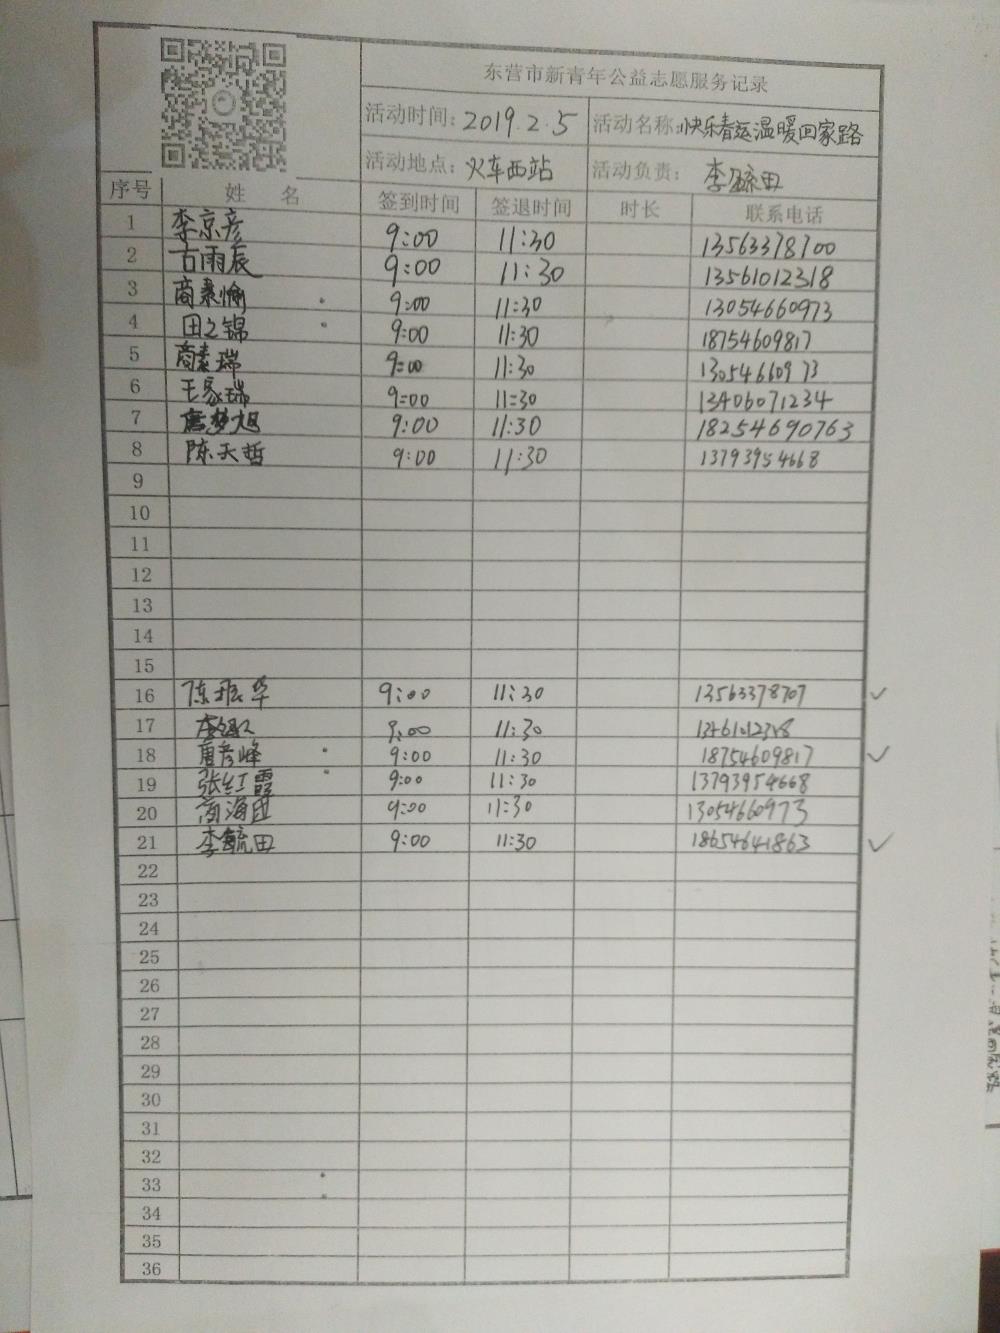 东营市新青年公益志愿服务记录
活动时间：2019.2.5 活动名称：快乐春运温暖回家路
活动地点：火车西站 活动负责：李毓田
序号 姓 名 签到时间 签退时间 时长 联系电话
1 李京彦 9:00 11:30 13563378700
2 古雨辰 9:00 11:30 13561012318
3 商素愉 9:00 11:30 13054660973
4 田之锦 9:00 11:30 18754609817
5 商素瑞 9:00 11:30 13054660973
6 王家瑞 9:00 11:30 13406071234
7 唐梦旭 9:00 11:30 18254690763
8 陈天哲 9:00 11:30 13793954668
9
10
11
12
13
14
15
16 陈振华 9:00 11:30 13563378707
17 9:00 11:30
18 唐彦峰 9:00 11:30 18754609817
19 张红霞 9:00 11:30 13793954668
20 商海 9:00 11:30 13054660973
21 李毓田 9:00 11:30 18654641863
22
23
24
25
26
27
28
29
30
31
32
33
34
35
36